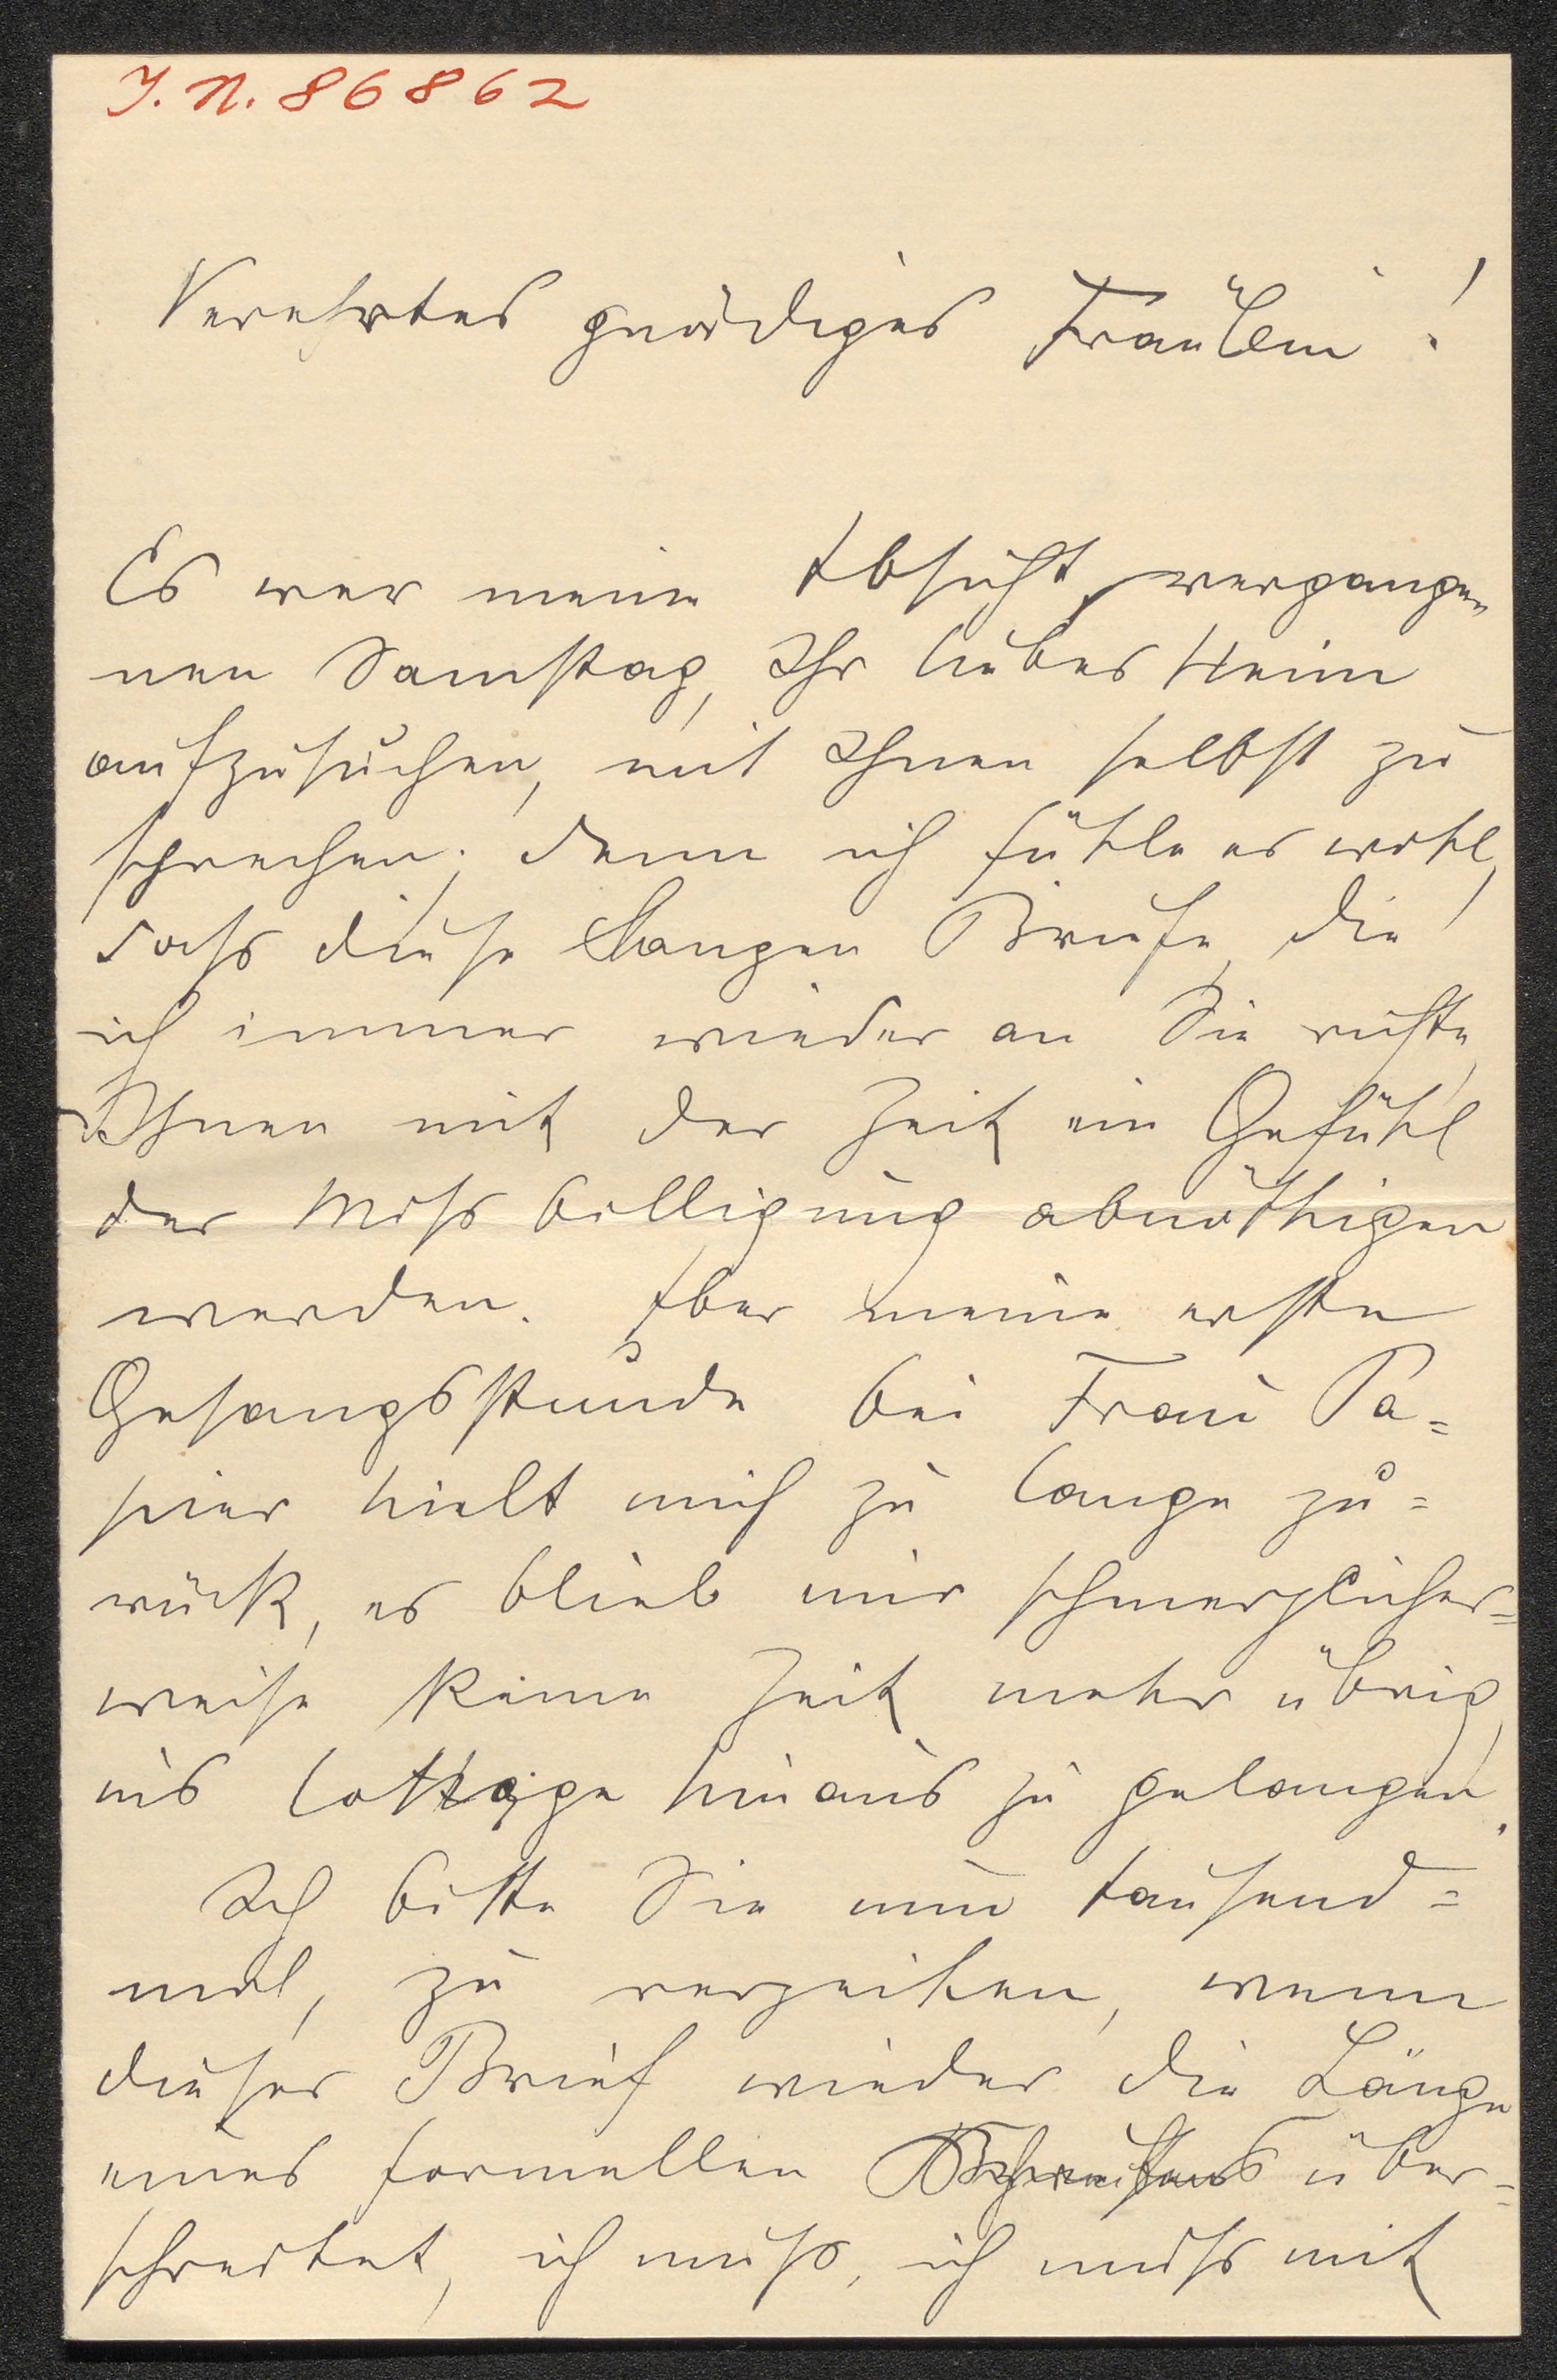 J. N. 86862
Verehrtes gnädiges Fräulein!
Es war meine Absicht, vergange-
nen Samstag, Ihr liebes Heim
aufzusuchen, mit Ihnen selbst zu
sprechen; denn ich fühle es wohl,
dass diese langen Briefe, die
ich immer wieder an Sie richte,
Ihnen mit der Zeit ein Gefühl
der Missbilligung abnöthigen
werden. Aber meine erste
Gesangsstunde bei Frau Pa=
pier hielt mich zu lange zu=
rück, es blieb mir schmerzlicher=
weise keine Zeit mehr übrig,
ins Cottage hinaus zu gelangen.
Ich bitte Sie nun tausend=
mal, zu verzeihen, wenn
dieser Brief wieder die Länge
eines formellen Schreibens über=
schreitet, ich muss, ich muss mit